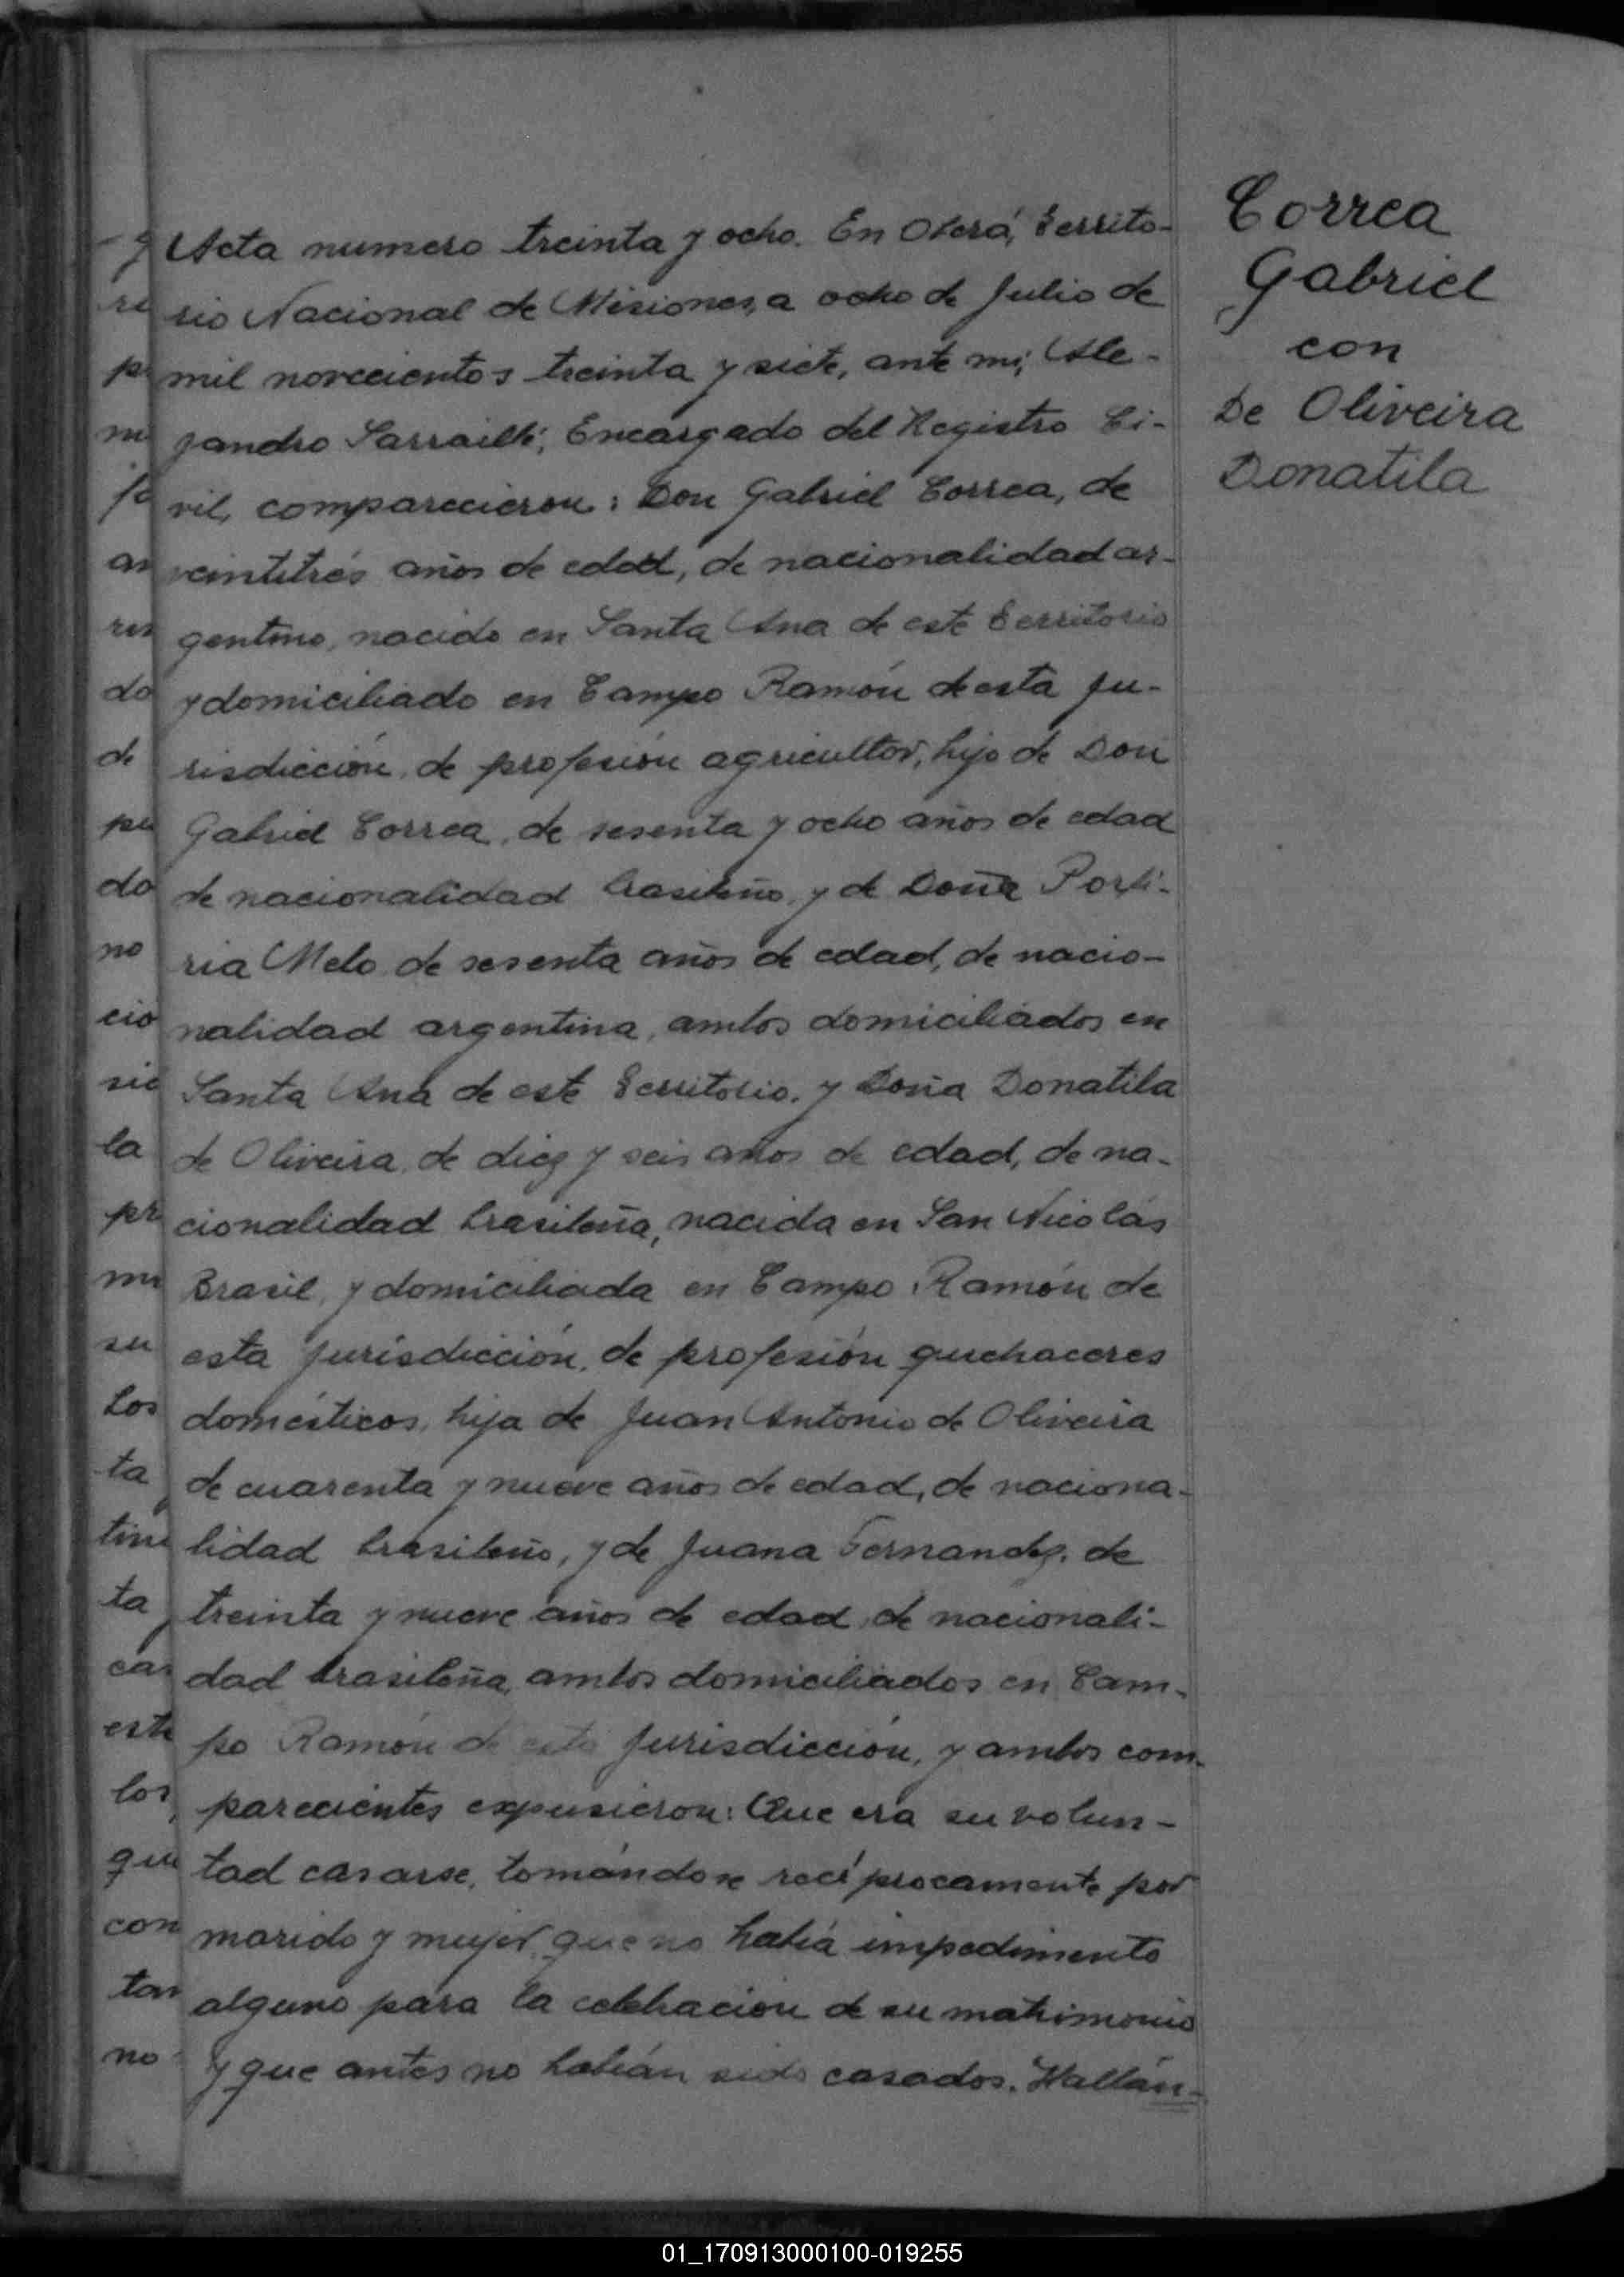 Acta numero treinta y ocho. En Oberá, Territo-
rio Nacional de Misiones, a ocho de Julio de
mil novecientos treinta y siete, ante mi, Ale-
jandro Sarrailh, Encargado del Registro Ci-
vil, comparecieron: Don Gabriel Correa, de
veintitrés años de edad, de nacionalidad ar-
gentino, nacido en Santa Ana de este Territorio
y domiciliado en Campo Ramón de esta ju-
risdicción, de profesión agricultor, hijo de Don
Gabriel Correa, de sesenta y ocho años de edad
de nacionalidad brasileño, y de Doña
Melo de sesenta años de edad, de nacio-
nalidad argentina, ambos domiciliados en
Santa Ana de este Territorio, y Doña Donatila
de Oliveira, de diez y seis años de edad, de na-
cionalidad brasileña, nacida en San Nicolás
Brasil, y domiciliada en Campo Ramón de
esta jurisdicción, de profesión quehaceres
domésticos, hija de Juan Antonio de Oliveira
de cuarenta y nueve años de edad, de naciona-
lidad brasileño, y de Juana Fernandez, de
treinta y nueve años de edad, de nacionali-
dad brasileña, ambos domiciliados en Cam-
po Ramón de esta jurisdicción, y ambos com-
parecientes expusieron: Que era su volun-
tad casarse, tomándose recíprocamente por
marido y mujer, que no había impedimento
alguno para la celebración de su matrimonio
y que antes no habían sido casados. Hallán-
Correa
Gabriel
con
De Oliveira
Donatila
01_170913000100-019255